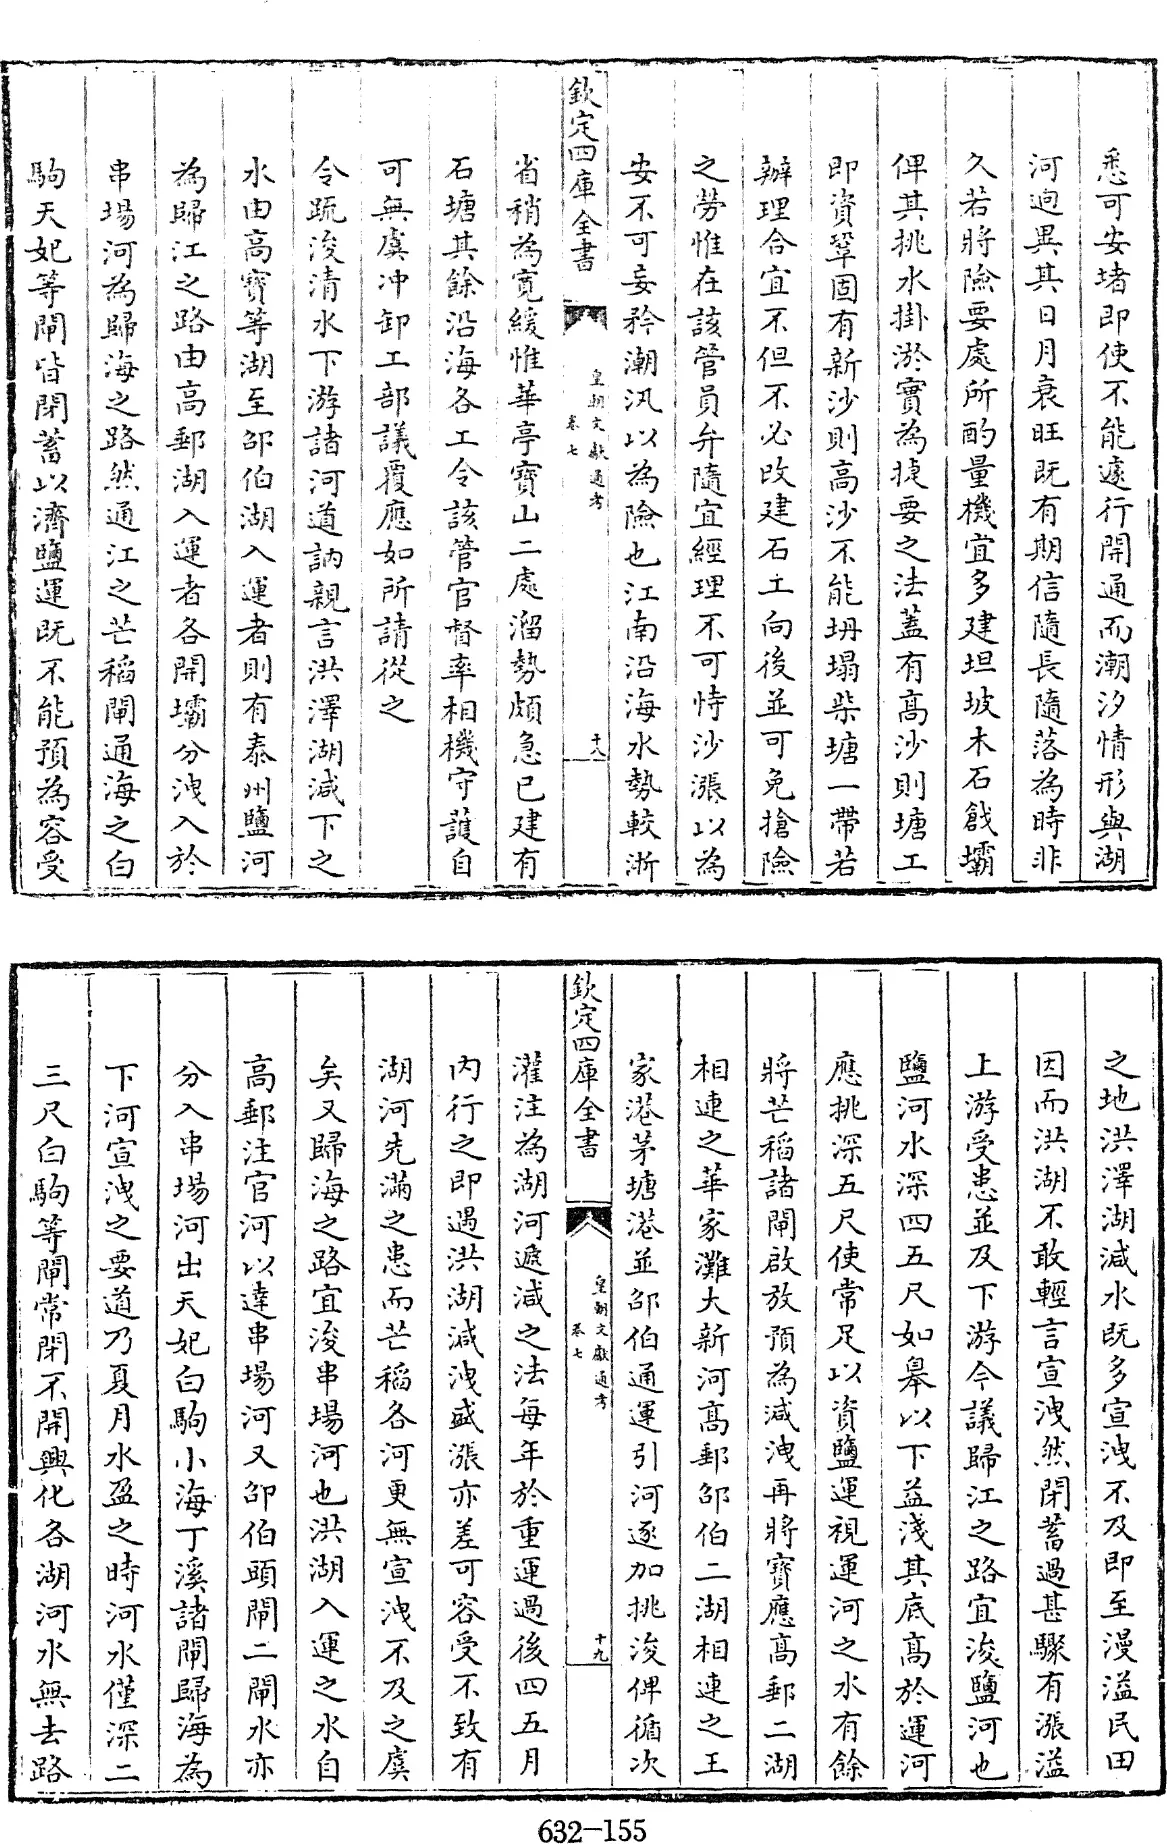 悉可安堵即使不能遽行開通而潮汐情形與湖
河逈異其日月衰旺既有期信隨長隨落為時非
久若將險要處所酌量機宜多建坦坡木石戧壩
俾其挑水掛淤實為捷要之法蓋有高沙則塘工
即資鞏固有新沙則高沙不能坍塌柴塘一帶若
辦理合宜不但不必改建石工向後並可免搶險
之勞惟在該管員弁隨宜經理不可恃沙漲以為
安不可妄矜潮汛以為險也江南沿海水勢較浙
欽定四庫全書
皇朝文獻通考
卷七
十八
省稍為寬緩惟華亭寶山二處溜勢頗急已建有
石塘其餘沿海各工令該管官督率相機守護自
可無虞沖卸工部議覆應如所請從之
令疏浚清水下游諸河道訥親言洪澤湖減下之
水由高寶等湖至邵伯湖入運者則有泰州鹽河
為歸江之路由高郵湖入運者各開壩分洩入於
串場河為歸海之路然通江之芒稻閘通海之白
駒天妃等閘皆閉蓄以濟鹽運既不能預為容受
之地洪澤湖減水既多宣洩不及即至漫溢民田
因而洪湖不敢輕言宣洩然閉蓄過甚驟有漲溢
上游受患並及下游今議歸江之路宜浚鹽河也
鹽河水深四五尺如皋以下益淺其底高於運河
應挑深五尺使常足以資鹽運視運河之水有餘
將芒稻諸閘啟放預為減洩再將寶應高郵二湖
相連之華家灘大新河高郵邵伯二湖相連之王
家港茅塘港並邵伯通運引河逐加挑浚俾循次
欽定四庫全書
皇朝文獻通考
卷七
十九
灌注為湖河遞減之法每年於重運過後四五月
內行之即遇洪湖減洩盛漲亦差可容受不致有
湖河先滿之患而芒稻各河更無宣洩不及之虞
矣又歸海之路宜浚串場河也洪湖入運之水自
高郵注官河以達串場河又邵伯頭閘二閘水亦
分入串場河出天妃白駒小海丁溪諸閘歸海為
下河宣洩之要道乃夏月水盈之時河水僅深二
三尺白駒等閘常閉不開興化各湖河水無去路
632-155